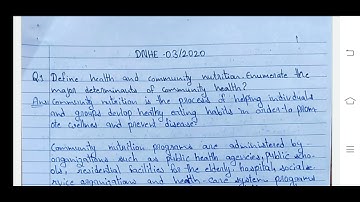 DNHE-03/2020
Q1 Define health and community nutrition. Enumerate the
major determinants of community health?
Ans Community nutrition is the process of helping individuals
and groups devlop heathy eating habits in order to prom
ote wellnes and prevent disease.
Community nutrition programs are administered by
organizations such as public health agencies, public scho-
ols, residential facilities for the elderly, hospitals social se-
rvice organizations and health-care system programs